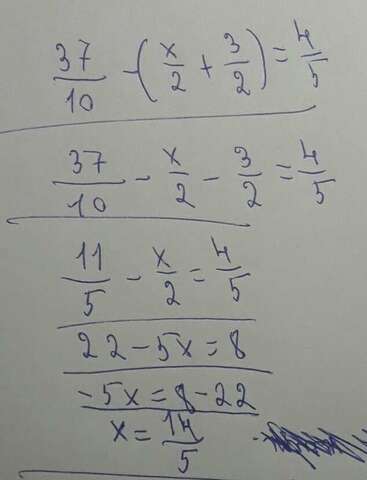 37/10 - (x/2 + 3/2) = 4/5
37/10 - x/2 - 3/2 = 4/5
11/5 - x/2 = 4/5
22 - 5x = 8
-5x = 8 - 22
x = 14/5